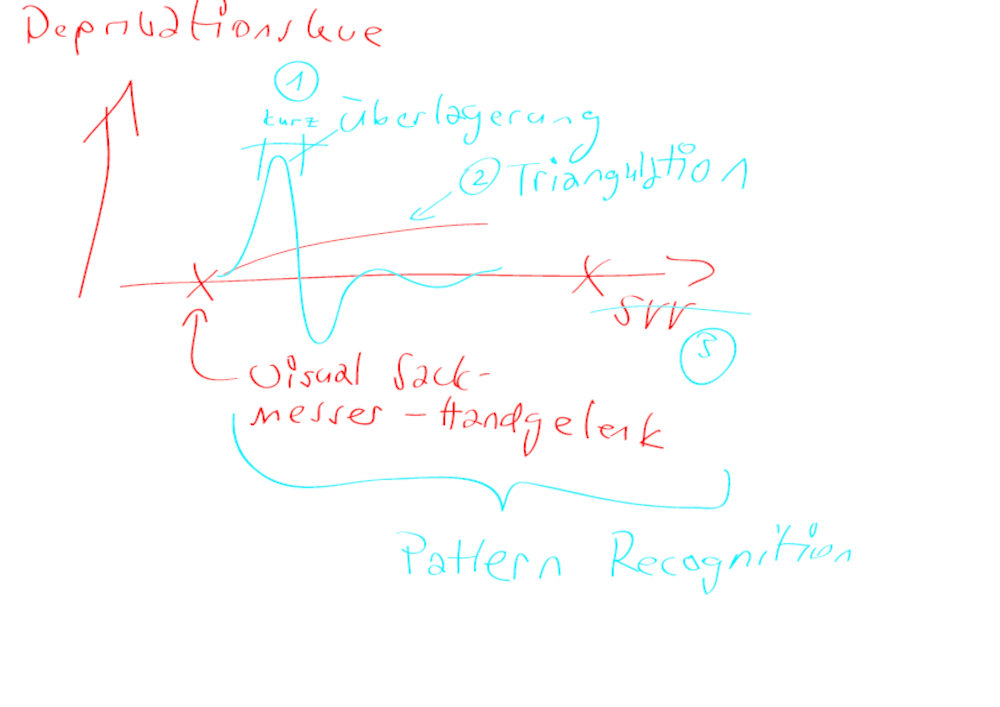 Deprivationskue
1
kurz Überlagerung
2 Triangulation
SVV
3
Visual Sack-
messer - Handgelenk
Pattern Recognition